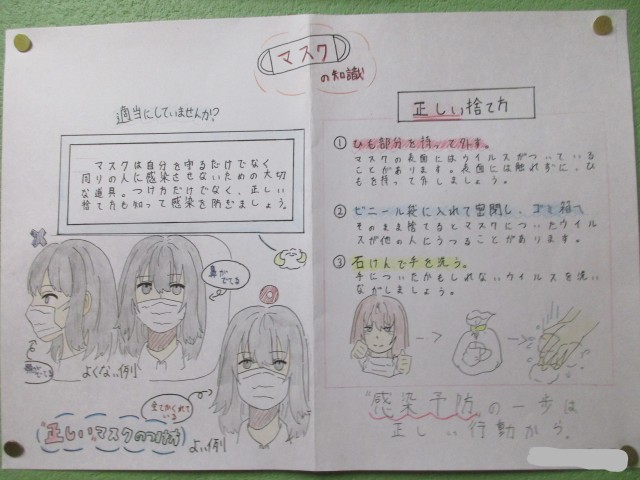 マスク
の知識
適当にしていませんか?
マスクは自分を守るだけでなく
周りの人に感染させないための大切
な道具。つけ方だけでなく、正しい
捨て方も知って感染を防ぎましょう。
鼻が
でてる
よくない例
全てかくれて
いる
よい例
"正しい"マスクのつけ方
正しい捨て方
① ひも部分を持って外す。
マスクの表面にはウイルスがついている
ことがあります。表面には触れずに、ひ
もを持って外しましょう。
② ビニール袋に入れて密閉し、ゴミ箱へ
そのまま捨てるとマスクについたウイル
スが他の人にうつることがあります。
③ 石けんで手を洗う。
手についたかもしれないウイルスを洗い
ながしましょう。
"感染予防の一歩は
正しい行動から。